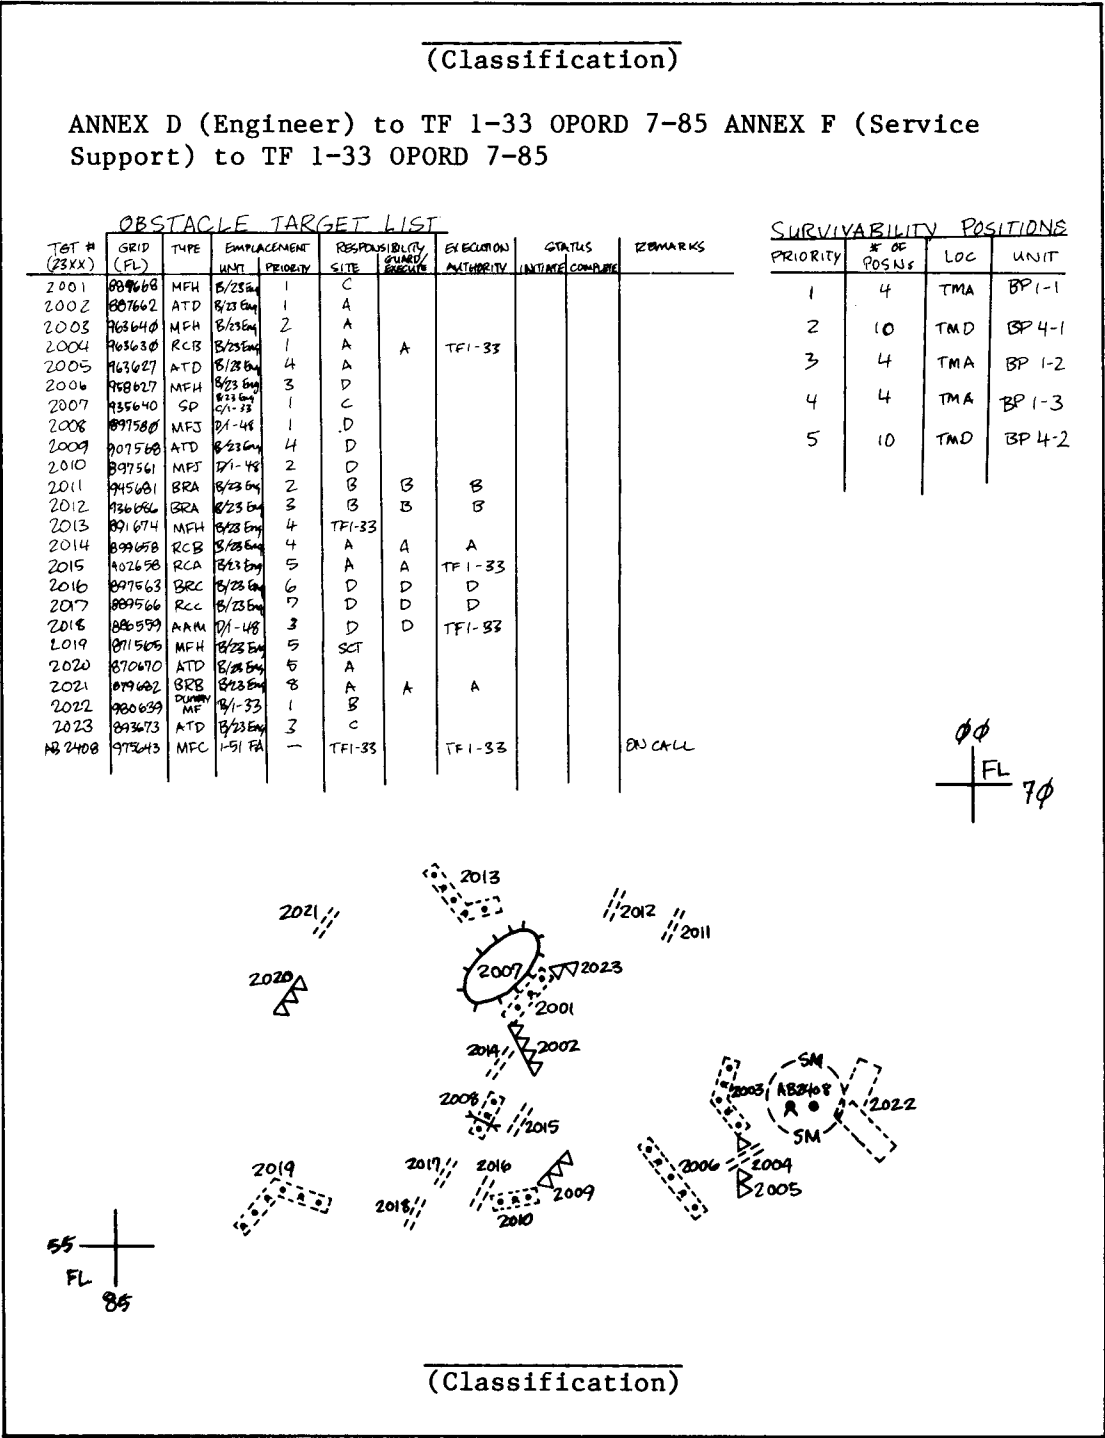 (Classification)
ANNEX D (Engineer) to TF 1-33 OPORD 7-85 ANNEX F (Service
Support) to TF 1-33 OPORD 7-85
OBSTACLE TARGET LIST
TGT # GRID TYPE EMPLACEMENT RESPONSIBILITY EXECUTION STATUS REMARKS
(23XX) (FL) UNIT PRIORITY SITE GUARD/EXECUTE AUTHORITY INITIATE COMPLETE
2001 889668 MFH B/23 Eng 1 C
2002 887662 ATD B/23 Eng 1 A
2003 963640 MFH B/23 Eng 2 A
2004 963630 RCB B/23 Eng 1 A A TF1-33
2005 963627 ATD B/23 Eng 4 A
2006 958627 MFH B/23 Eng 3 D
2007 935640 SP B/23 Eng C/1-33 1 C
2008 897580 MFJ D/1-48 1 D
2009 907568 ATD B/23 Eng 4 D
2010 897561 MFJ D/1-48 2 D
2011 945681 BRA B/23 Eng 2 B B B
2012 936686 BRA B/23 Eng 3 B B B
2013 891674 MFH B/23 Eng 4 TF1-33
2014 899658 RCB B/23 Eng 4 A A A
2015 902658 RCA B/23 Eng 5 A A TF1-33
2016 897563 BRC B/23 Eng 6 D D D
2017 889566 RCC B/23 Eng 7 D D D
2018 886559 AAM D/1-48 3 D D TF1-33
2019 871565 MFH B/23 Eng 5 SCT
2020 870670 ATD B/23 Eng 5 A
2021 879682 BRB B/23 Eng 8 A A A
2022 980639 DUMMY MF B/1-33 1 B
2023 893673 ATD B/23 Eng 3 C
AB 2408 975643 MFC 1-51 FA — TF1-33 TF1-33 ON CALL
SURVIVABILITY POSITIONS
PRIORITY # OF POSNs LOC UNIT
1 4 TMA BP 1-1
2 10 TMD BP 4-1
3 4 TMA BP 1-2
4 4 TMA BP 1-3
5 10 TMD BP 4-2
00
FL
70
2013
2021
2012
2011
2007
2023
2020
2001
2014
2002
SM
2003
AB2408
2022
2008
2015
SM
2019
2017
2016
2006
2004
2018
2009
2005
2010
55
FL
85
(Classification)